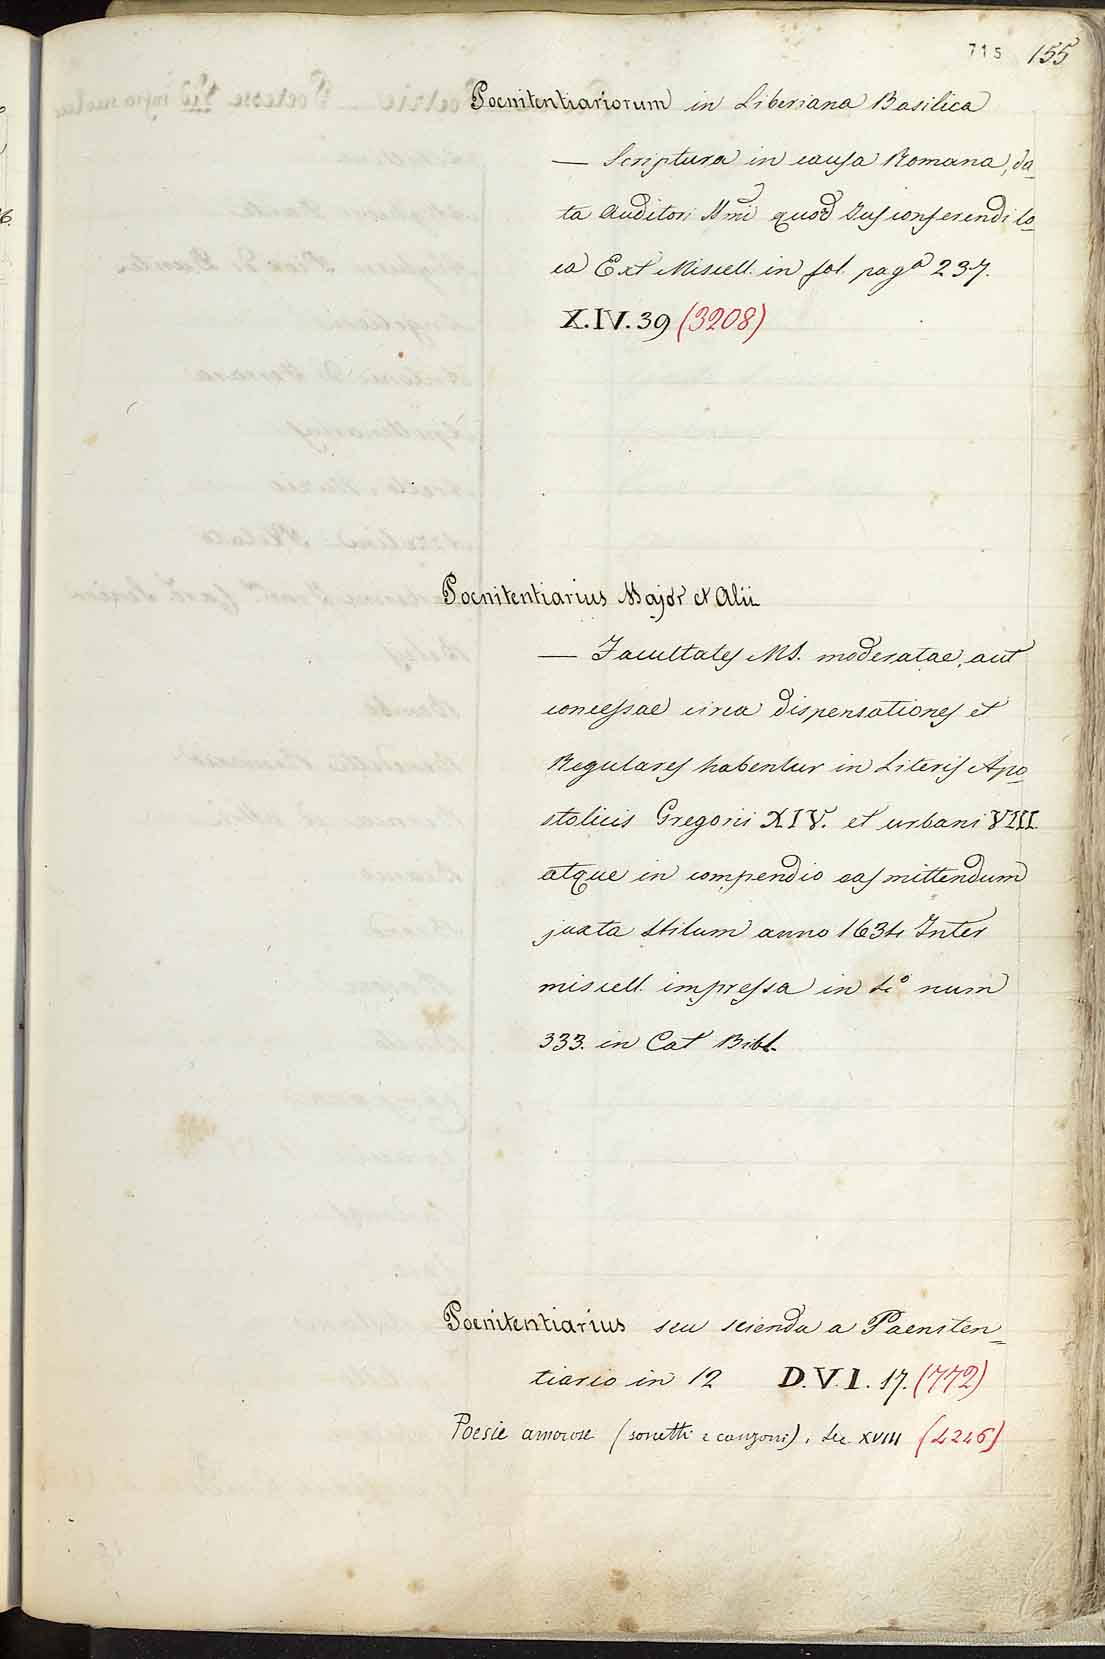 715 155
Poenitentiariorum in Liberiana Basilica
— Scriptura in causa Romana, da_
ta Auditori SSmi quod Jus conferendi lo_
ca Ext Miscell. in fol. paga 237.
X.IV.39 (3208)
Poenitentiarius Major et Alii
— Facultates MS. moderatae, aut
concessae circa dispensationes et
Regulares habentur in Literis Apo_
stolicis Gregorii XIV. et urbani VIII.
atque in compendio eas mittendum
juxta stilum anno 1634 Inter
miscell. impressa in 4º num
333. in Cat Bibl.
Poenitentiarius seu scienda a Paeniten=
tiario in 12 D.V.I.17. (772)
Poesie amorose (sonetti e canzoni), sec XVIII (4246)